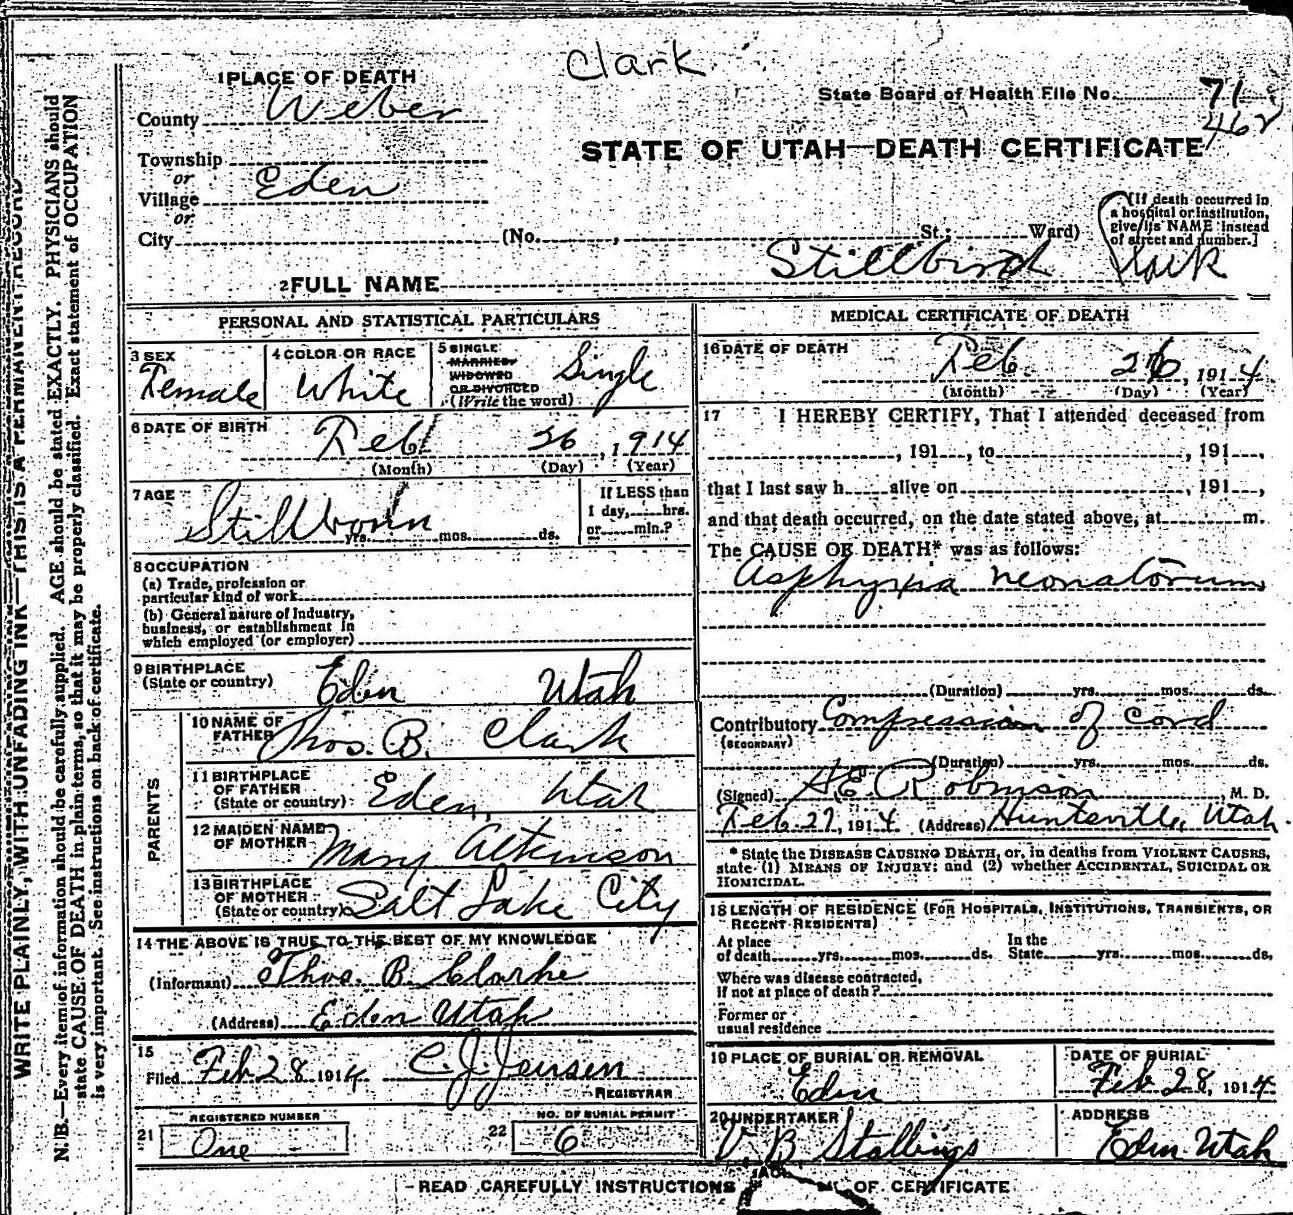 Clark
1 PLACE OF DEATH
State Board of Health File No. 71
462
County Weber
STATE OF UTAH—DEATH CERTIFICATE
Township
or
Village Eden
or
City (No. , St.; Ward)
[If death occurred in a hospital or institution, give its NAME instead of street and number.]
2 FULL NAME Stillbirth Clark
PERSONAL AND STATISTICAL PARTICULARS
3 SEX Female
4 COLOR OR RACE White
5 SINGLE MARRIED, WIDOWED OR DIVORCED (Write the word) Single
6 DATE OF BIRTH Feb 26, 1914
(Month) (Day) (Year)
7 AGE Stillborn yrs. mos. ds.
If LESS than 1 day, hrs. or min.?
8 OCCUPATION
(a) Trade, profession or particular kind of work
(b) General nature of Industry, business, or establishment in which employed (or employer)
9 BIRTHPLACE (State or country) Eden Utah
PARENTS
10 NAME OF FATHER Thos. B. Clark
11 BIRTHPLACE OF FATHER (State or country) Eden, Utah
12 MAIDEN NAME OF MOTHER Mary Atkinson
13 BIRTHPLACE OF MOTHER (State or country) Salt Lake City
14 THE ABOVE IS TRUE TO THE BEST OF MY KNOWLEDGE
(Informant) Thos. B. Clarke
(Address) Eden Utah
15
Filed Feb 28 1914 C. J. Jensen
REGISTRAR
REGISTERED NUMBER
21 One
NO. OF BURIAL PERMIT
22 6
MEDICAL CERTIFICATE OF DEATH
16 DATE OF DEATH Feb. 26, 1914
(Month) (Day) (Year)
17 I HEREBY CERTIFY, That I attended deceased from
, 191 , to , 191 ,
that I last saw h alive on , 191 ,
and that death occurred, on the date stated above, at m.
The CAUSE OF DEATH* was as follows:
Asphyxia neonatorum
(Duration) yrs. mos. ds.
Contributory Compression of cord
(SECONDARY)
(Duration) yrs. mos. ds.
(Signed) Robinson M. D.
Feb. 27, 1914 (Address) Huntsville, Utah.
* State the DISEASE CAUSING DEATH, or, in deaths from VIOLENT CAUSES, state (1) MEANS OF INJURY; and (2) whether ACCIDENTAL, SUICIDAL OR HOMICIDAL.
18 LENGTH OF RESIDENCE (FOR HOSPITALS, INSTITUTIONS, TRANSIENTS, OR RECENT RESIDENTS)
At place of death yrs. mos. ds. In the State yrs. mos. ds.
Where was disease contracted, if not at place of death?
Former or usual residence
19 PLACE OF BURIAL OR REMOVAL Eden
DATE OF BURIAL Feb 28, 1914
20 UNDERTAKER V. B Stallings
ADDRESS Eden Utah
READ CAREFULLY INSTRUCTIONS OF CERTIFICATE
WRITE PLAINLY, WITH UNFADING INK—THIS IS A PERMANENT RECORD
N. B.—Every item of information should be carefully supplied. AGE should be stated EXACTLY. PHYSICIANS should
state CAUSE OF DEATH in plain terms, so that it may be properly classified. Exact statement of OCCUPATION
is very important. See instructions on back of certificate.